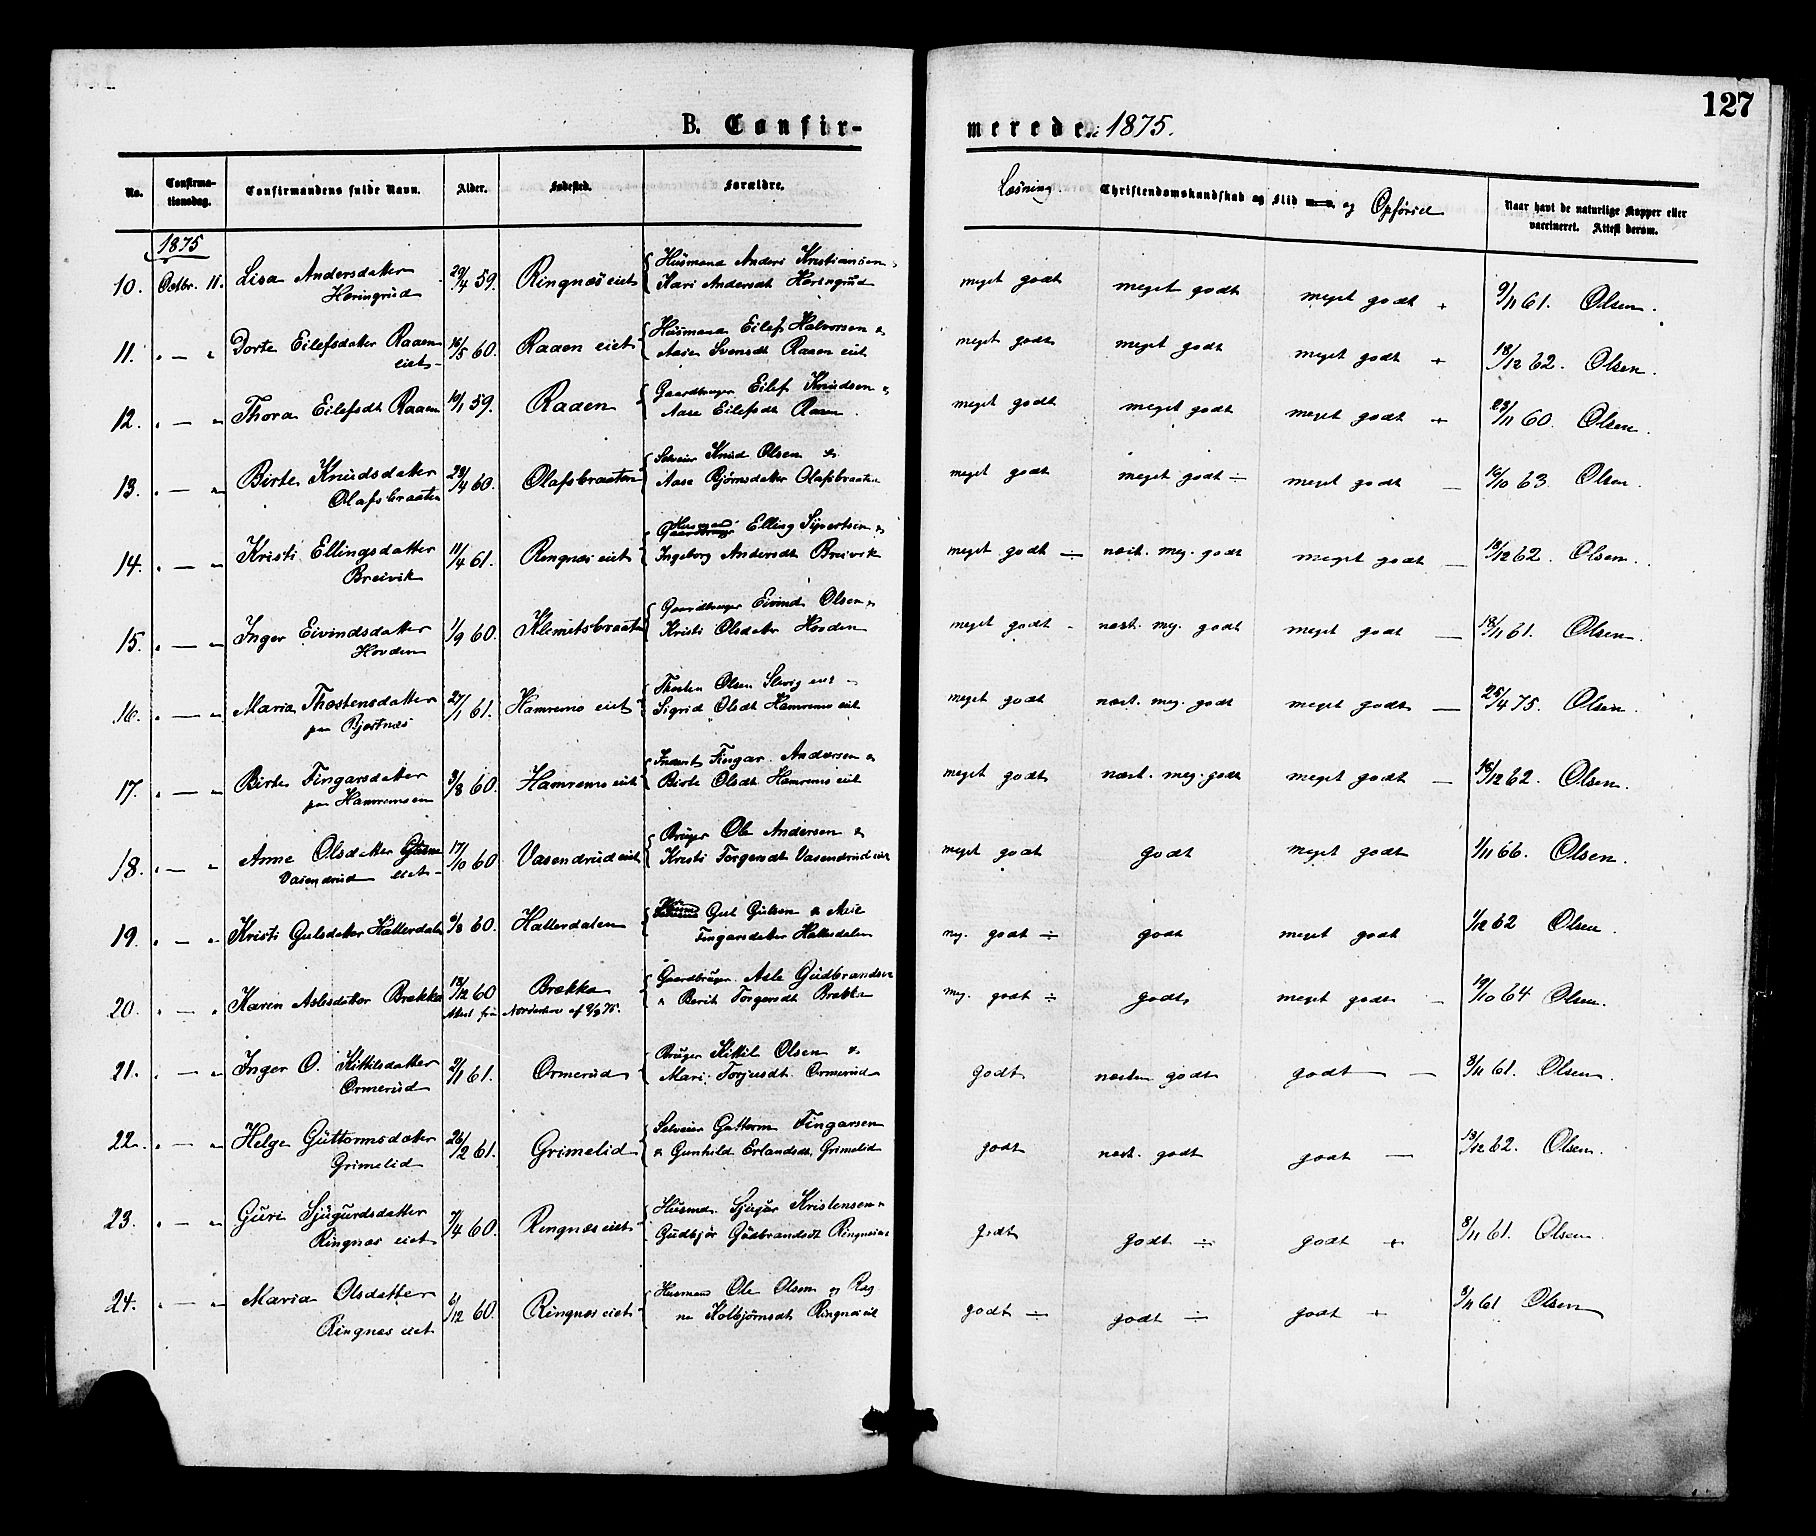 127
B. Confir-
merede. 1875.
No. Confirma-tionsdag. Confirmandens fulde Navn. Alder. Fødested. Forældre. Læsning. Christendomskundskab og Flid m. v. og Opførsel Naar havt de naturlige Kopper eller vaccineret. Attest derom.
1875
10. Octbr. 11. Lisa Andersdatter 29/4 59. Ringnæs eiet Husmand Anders Kristiansen meget godt meget godt meget godt + 9/11 61. Olsen.
Heringrud Kari Andersdt Heringrud
11. " — " Dorte Eilefsdatter Raaen 16/5 60. Raaen eiet Husmand Eilef Halvorsen & meget godt meget godt meget godt + 18/12 62. Olsen.
eiet Aase Svensdt Raaen eiet
12. " — " Thora Eilefsdt Raaen 10/1 59. Raaen Gaardbruger Eilef Knudsen & meget godt meget godt meget godt + 23/11 60. Olsen.
Aase Eilefsdt Raaen
13. " — " Birte Knudsdatter 29/4 60. Olafsbraaten Selveier Knud Olsen & meget godt meget godt ÷ meget godt — 16/10 63. Olsen.
Olafsbraaten Aase Bjørnsdatter Olafsbraaten
14. " — " Kristi Ellingsdatter 11/4 61. Ringnæs eiet Husmand Elling Sivertsen & meget godt ÷ næst. meg. godt meget godt — 18/12 62. Olsen.
Breivik Ingeborg Andersdt Breivik
15. " — " Inger Eivindsdatter 1/9 60. Klemitsbraaten Gaardbruger Eivind Olsen & meget godt - næst. meg. godt meget godt — 18/11 61. Olsen.
Hovden Kristi Olsdatr Hovden
16. " — " Maria Thostensdatter 27/1 61. Hamremo eiet Thosten Olsen eiet meget godt næst. meg. godt meget godt — 25/4 75. Olsen.
paa Sigrid Olsdt Hamremo eiet
17. " — " Birte Fingarsdatter 3/8 60. Hamremo eiet Inderst Fingar Andersen & meget godt næst. meg. godt meget godt — 18/12 62. Olsen.
paa Hamremoen Birte Olsdt Hamremo eiet
18. " — " Anne Olsdatter 17/10 60. Vasendrud eiet Bruger Ole Andersen & meget godt godt meget godt 1/11 66. Olsen.
Vasendrud eiet Kristi Torgersdt Vasendrud eiet
19. " — " Kristi Gulsdatter Hallerdalen 6/8 60. Hallerdalen Gul Gulsen & meg. godt ÷ godt meget godt 1/12 62 Olsen.
Fingarsdatter Hallerdalen
20. " — " Karen Aslesdatter Brækka 18/12 60 Brækka Gaardbruger Asle Gudbrandsen meg. godt ÷ godt meget godt — 19/10 64 Olsen.
Attest fra Norderhov af 9/9 75. & Berit Torgersdt Brække
21. " — " Inger O. Kittilsdatter 2/11 61. Ormerud Bruger Kittil Olsen & godt næsten godt godt — 3/11 61. Olsen.
Ormerud Mari Torjusdt Ormerud
22. " — " Helge Guttormsdatter 26/2 61. Grimelid Selveier Guttorm Fingarsen godt næst. godt godt — 13/12 62. Olsen.
Grimelid & Gunhild Erlandsdt Grimelid
23. " — " Guri Sjugurdsdatter 7/4 60. Ringnæs eiet Husmd. Sjugur Kristensen & godt godt ÷ godt + 8/11 61. Olsen.
Ringnæs eiet Gudbjør Gudbrandsdt Ringnæs eiet
24. " — " Maria Olsdatter 6/12 60. Ringnæs eiet Husmand Ole Olsen og Rag godt ÷ godt ÷ godt + 8/11 61 Olsen
Ringnæs eiet ne Kolbjørnsdt Ringnæs eiet